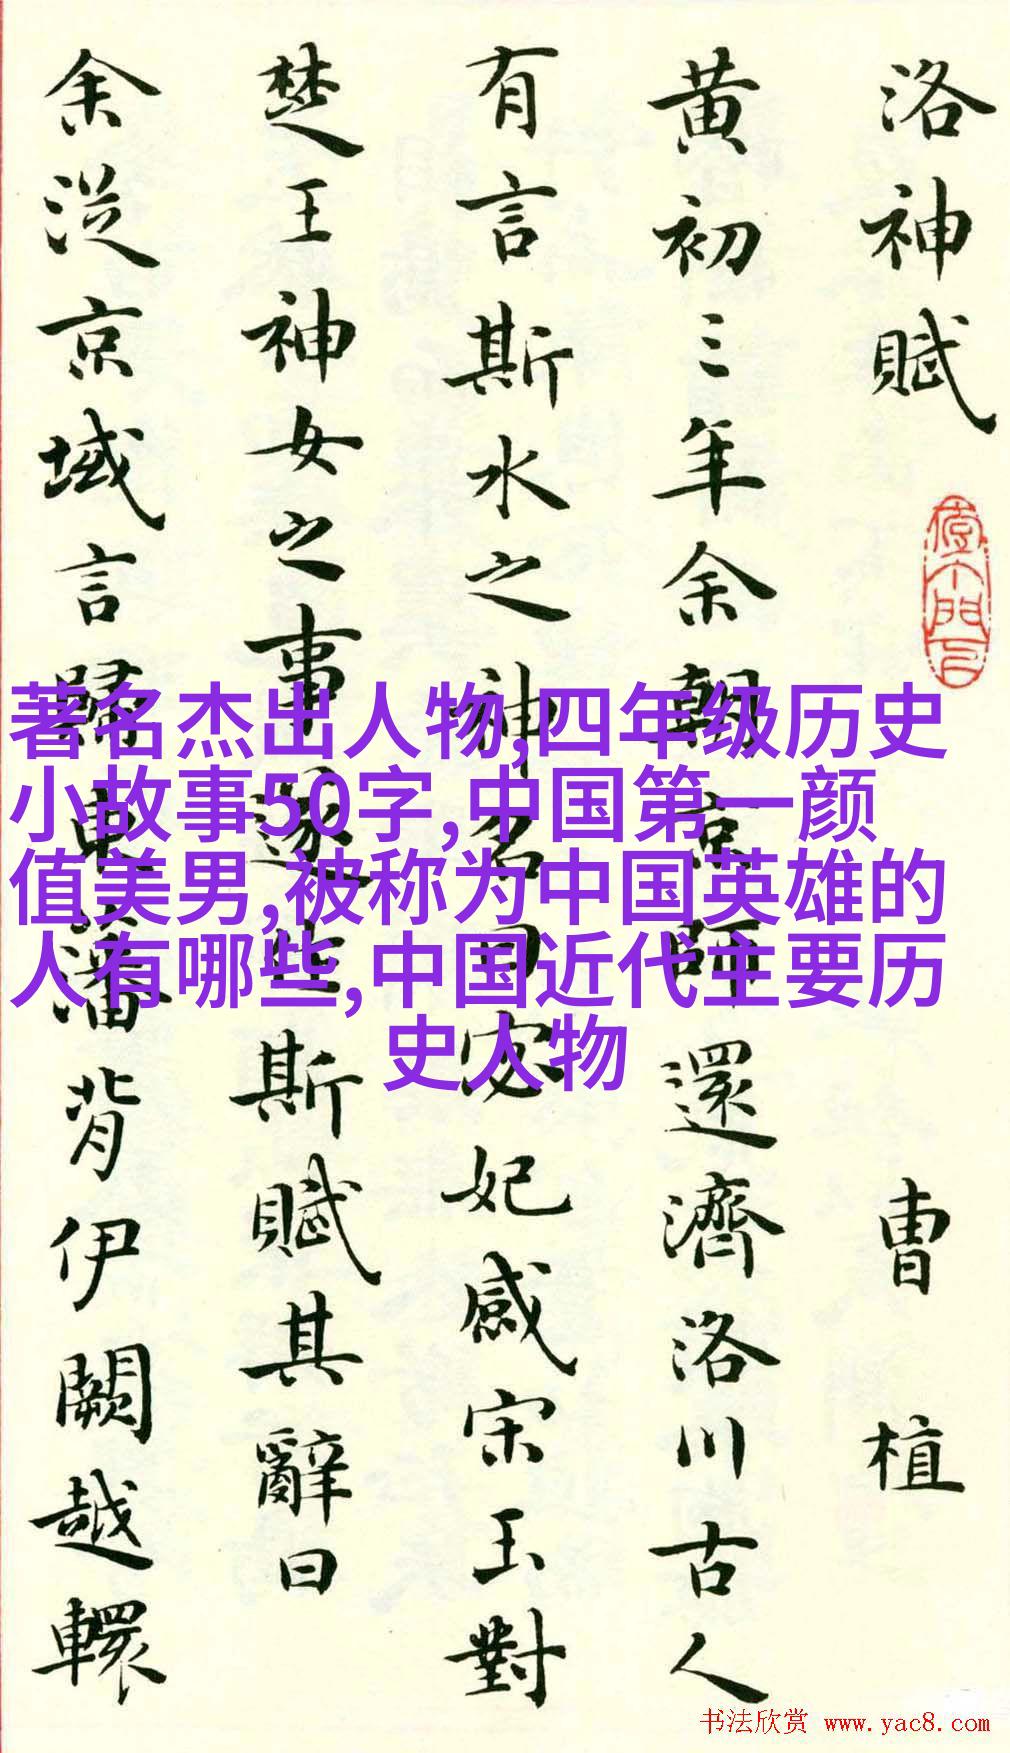 洛神賦
曹植
黄初三年余朝京師還濟洛川古人
有言斯水之神名曰宓妃感宋玉對
楚王神女之事遂作斯賦其辭曰
余従京域言歸東藩背伊闕越轘
著名杰出人物,四年级历史
小故事50字,中国第一颜
值美男,被称为中国英雄的
人有哪些,中国近代主要历
史人物
书法欣赏 www.yac8.com